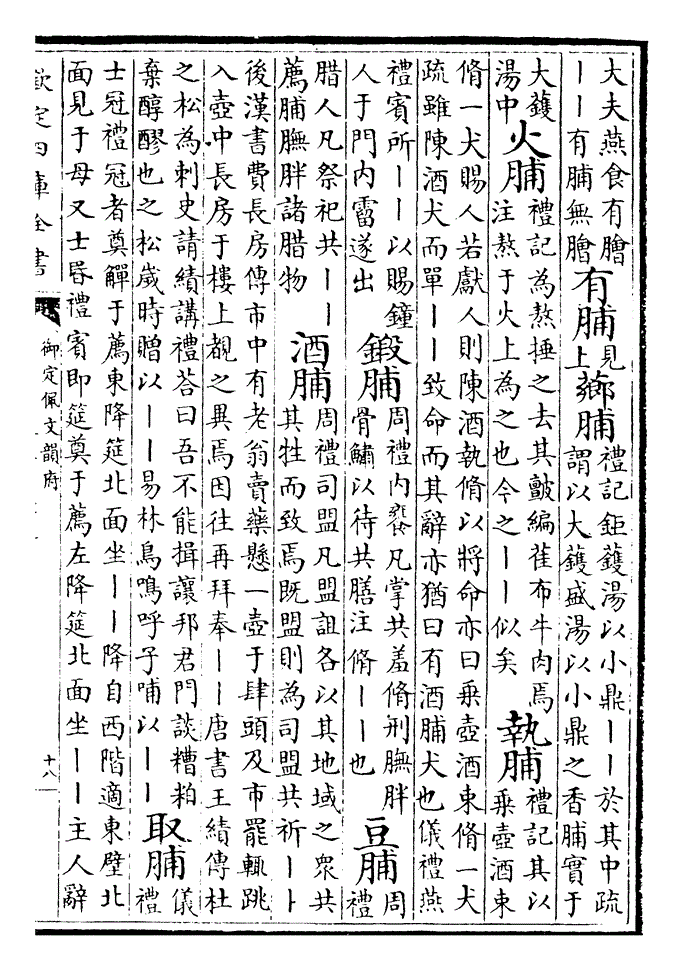 大夫燕食有膾
丨丨有脯無膾
有脯
見
上
薌脯
禮記鉅鑊湯以小鼎丨丨於其中疏
謂以大鑊盛湯以小鼎之香脯實于
大鑊
湯中
火脯
禮記為熬捶之去其皽編萑布牛肉焉
注熬于火上為之也今之丨丨似矣
執脯
禮記其以
乗壺酒東
脩一犬賜人若獻人則陳酒執脩以將命亦曰乗壺酒東脩一犬
疏雖陳酒犬而單丨丨致命而其辭亦猶曰有酒脯犬也儀禮燕
禮賓所丨丨以賜鐘
人于門内霤遂出
鍛脯
周禮内饔凡掌共羞脩刑膴胖
骨鱐以待共膳注脩丨丨也
豆脯
周
禮
腊人凡祭祀共丨丨
薦脯膴胖諸腊物
酒脯
周禮司盟凡盟詛各以其地域之衆共
其牲而致焉既盟則為司盟共祈丨丨
後漢書費長房傳市中有老翁賣藥懸一壺于肆頭及市罷輒跳
入壺中長房于樓上覩之異焉因往再拜奉丨丨唐書王績傳杜
之松為刺史請績講禮荅曰吾不能揖讓邦君門談糟粕
棄醇醪也之松歲時贈以丨丨易林烏鳴呼子哺以丨丨
取脯
儀
禮
士冠禮冠者奠觶于薦東降筵北面坐丨丨降自西階適東壁北
面見于母又士昏禮賓即筵奠于薦左降筵北面坐丨丨主人辭
欽定四庫全書
御定佩文韻府
十八